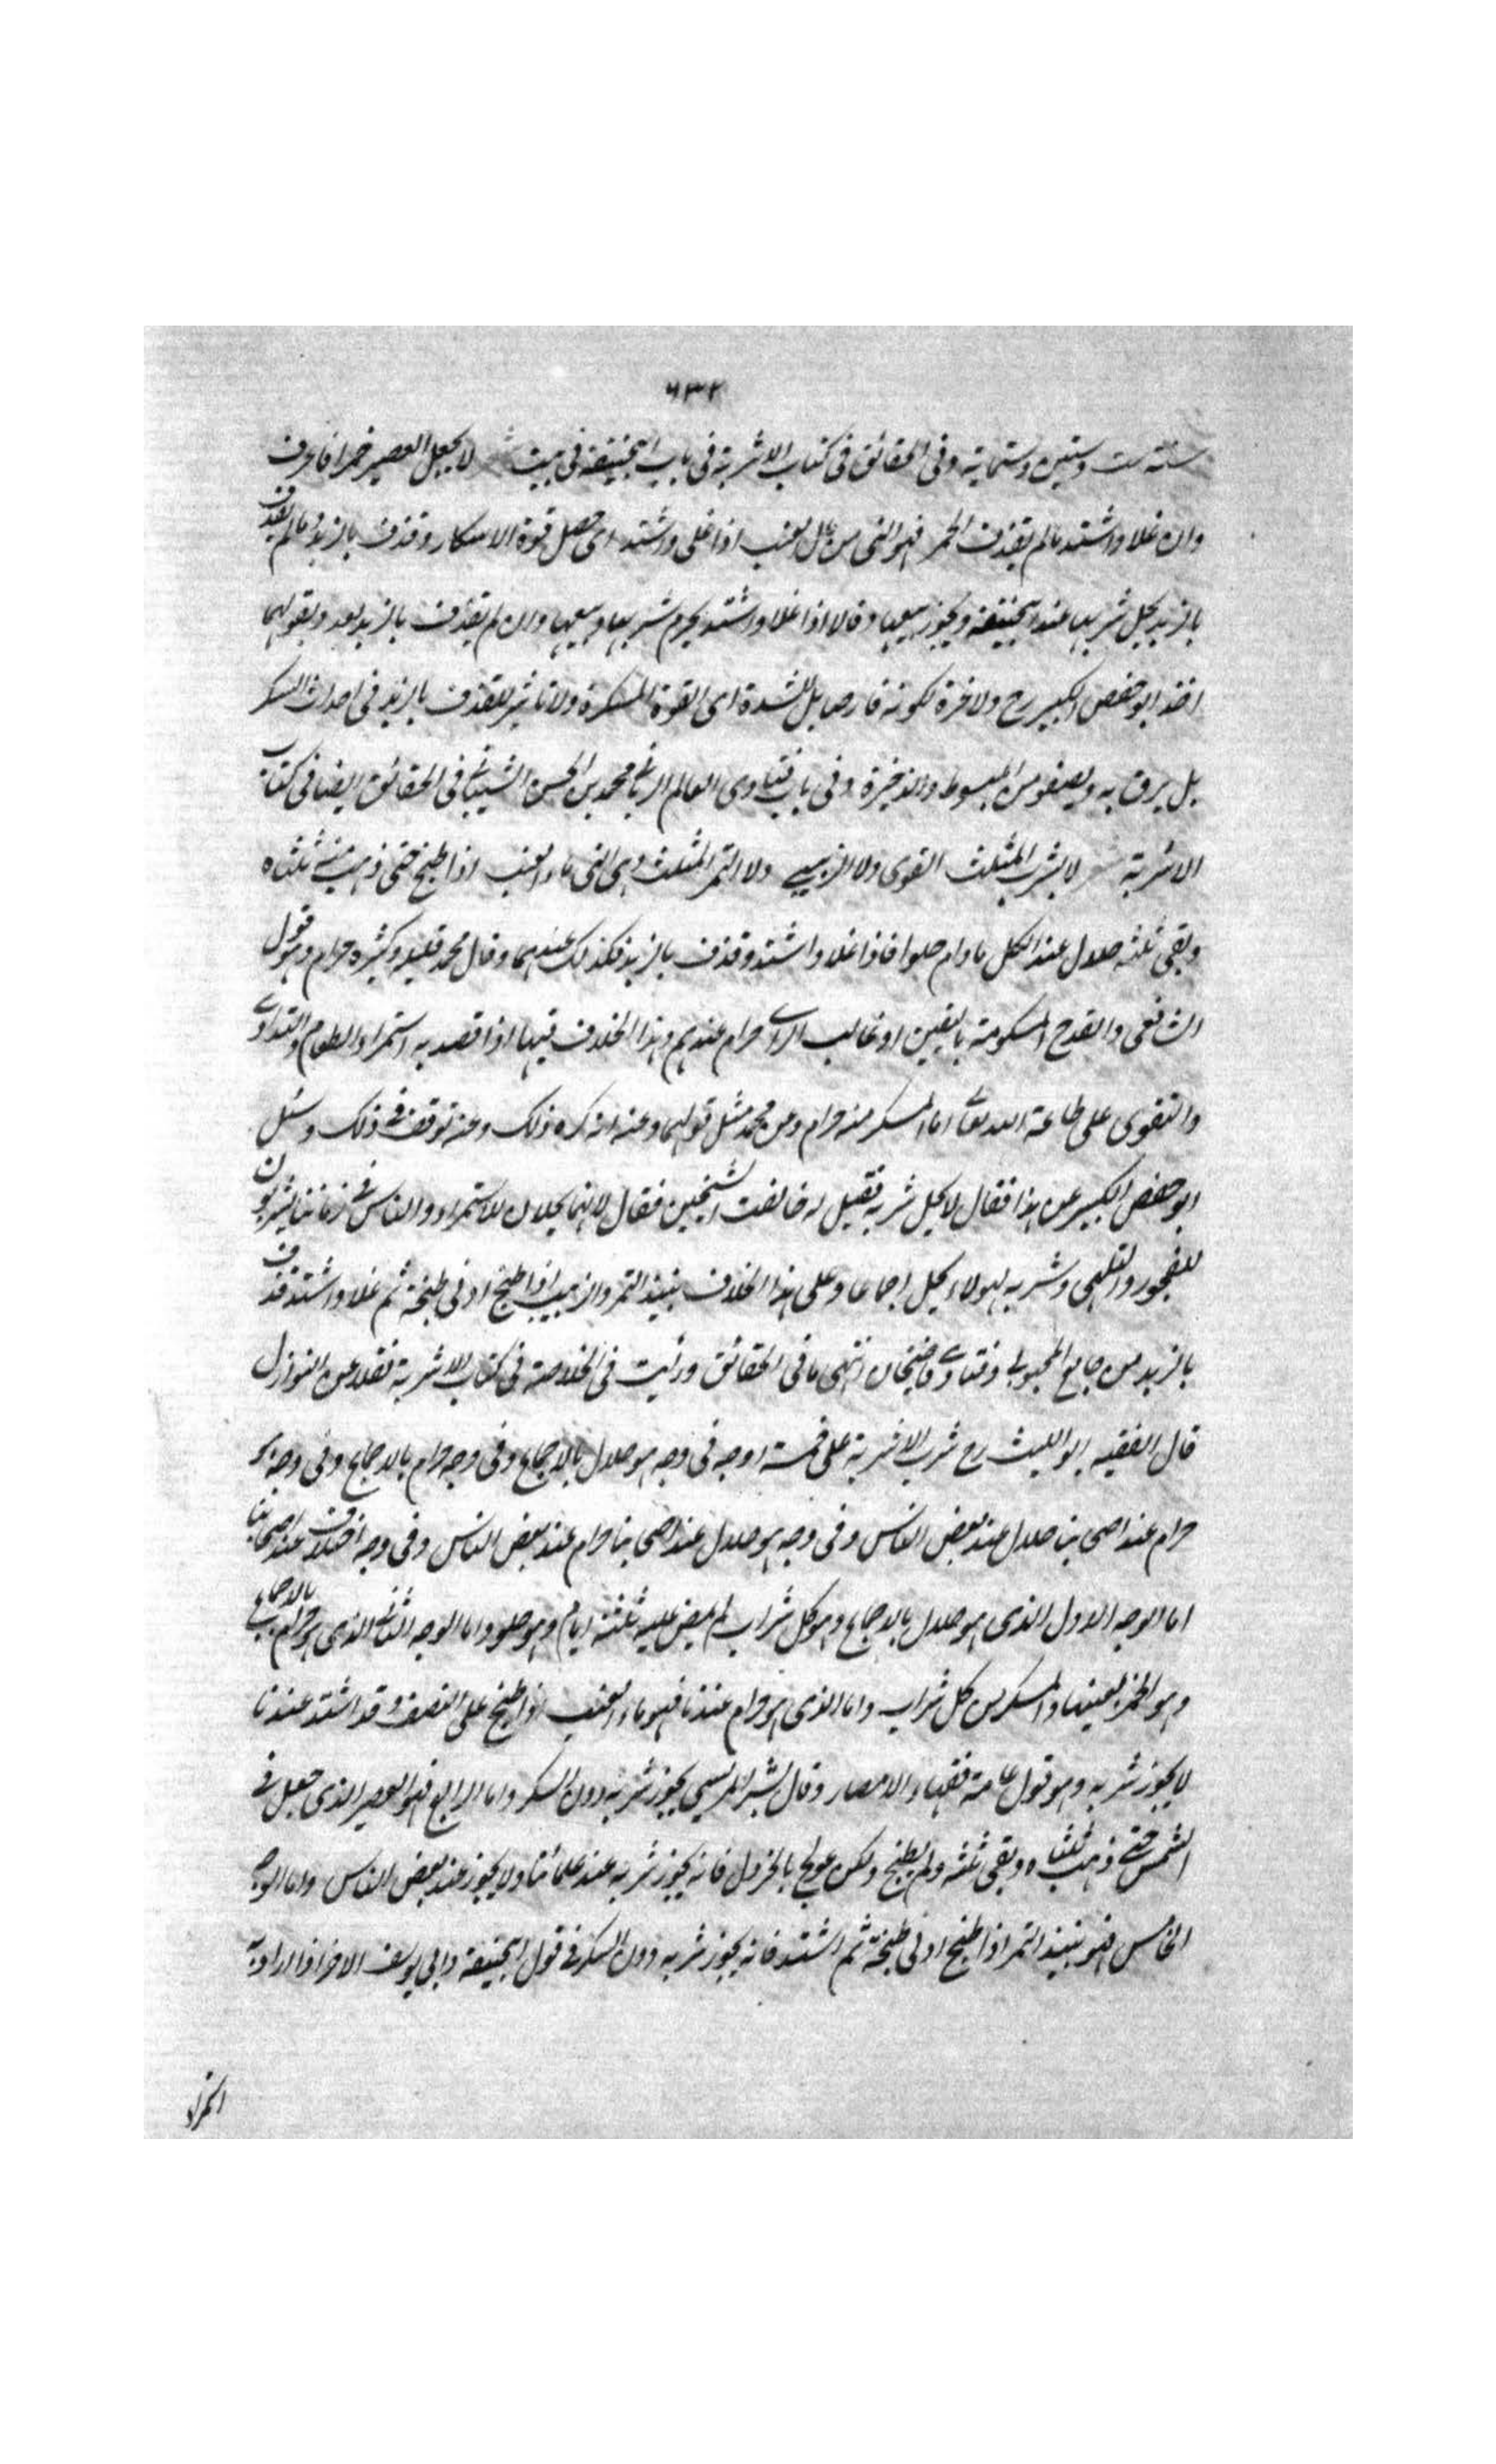 ٦٣٢
سنة ست وستين وستماية وفى الحقائق فى كتاب الاشربة فى باب ابيحنيفة فى بيت لا يجعل العصير خمرا فاعرف
وان غلا واشتد ما لم يقذف الخمر فهو النى من ماء العنب اذا غلى واشتد اى حصل قوة الاسكار وقذف بالزبد وما لم يقذف
بالزبد يحل شربها عند ابيحنيفة ويجوز بيعها وقالا اذا غلا واشتد يحرم شربها وبيعها وان لم يقذف بالزبد بعد وبقولهما
اخذ ابو حفص الكبير رح ولا خمرة لكونه قارصا بل للشدة اى القوة المسكرة ولا تاثير للقذف بالزبد فى احداث السكر
بل يرق به ويصفو من المبسوط والذخيرة وفى باب فتاوى العالم الربانى محمد بن الحسن الشيبانى فى الحقائق ايضا فى كتاب
الاشربة لا يشرب المثلث القوى ولا الزبيبى ولا التمر المثلث وهى النى ماء العنب اذا طبخ حتى ذهب منه ثلثاه
وبقى ثلثه حلال عند الكل ما دام حلوا فاذا غلا واشتد وقذف بالزبد فكذلك عندهما وقال محمد قليله وكثيره حرام وهو قول
الشافعى والقدح المسكر منه باليقين او غالب الراى حرام عندهم وهذا الخلاف فيها اذا قصد به استمراء الطعام والتداوى
والتقوى على طاعة الله تعالى اما المسكر منه حرام وعن محمد مثل قولهما وعنه انه كره ذلك وعنه توقف فى ذلك وسئل
ابو حفص الكبير عن هذا فقال لا يحل شربه فقيل له خالفت الشيخين فقال لا انهما يحلان للاستمراء والناس فى زماننا يشربون
للفجور والتلهى وشربه لهولاء يحل اجماعا وعلى هذا الخلاف نبيذ التمر والزبيب اذا طبخ ادنى طبخة ثم غلا واشتد وقذف
بالزبد من جامع المحبوبى وفتاوى قاضيخان انتهى ما فى الحقائق ورايت فى الخلاصة فى كتاب الاشربة نقلا عن النوازل
قال الفقيه ابو الليث رح شرب الاشربة على خمسة اوجه فى وجه هو حلال بالاجماع وفى وجه حرام بالاجماع وفى وجه هو
حرام عند اصحابنا حلال عند بعض الناس وفى وجه هو حلال عند اصحابنا حرام عند بعض الناس وفى وجه اختلاف عند اصحابنا
اما الوجه الاول الذى هو حلال بالاجماع وهو كل شراب لم يمض عليه ثلثة ايام وهو حلو واما الوجه الثانى الذى هو حرام بالاجماع
وهو الخمر بعينها والمسكر من كل شراب واما الذى هو حرام عندنا فهو ماء العنب اذا طبخ على النصف وقد اشتد عندنا
لا يجوز شربه وهو قول عامة فقهاء الامصار وقال بشر المريسى يجوز شربه دون السكر واما الرابع فهو العصير الذى جعل فى
الشمس حتى ذهب ثلثاه وبقى ثلثه ولم يطبخ ولكن عولج بالخردل فانه يجوز شربه عند علمائنا ولا يجوز عند بعض الناس واما الوجه
الخامس فهو نبيذ التمر اذا طبخ ادنى طبخة ثم اشتد فانه يجوز شربه دون السكر فى قول ابيحنيفة وابى يوسف الاخر اذا اراد به